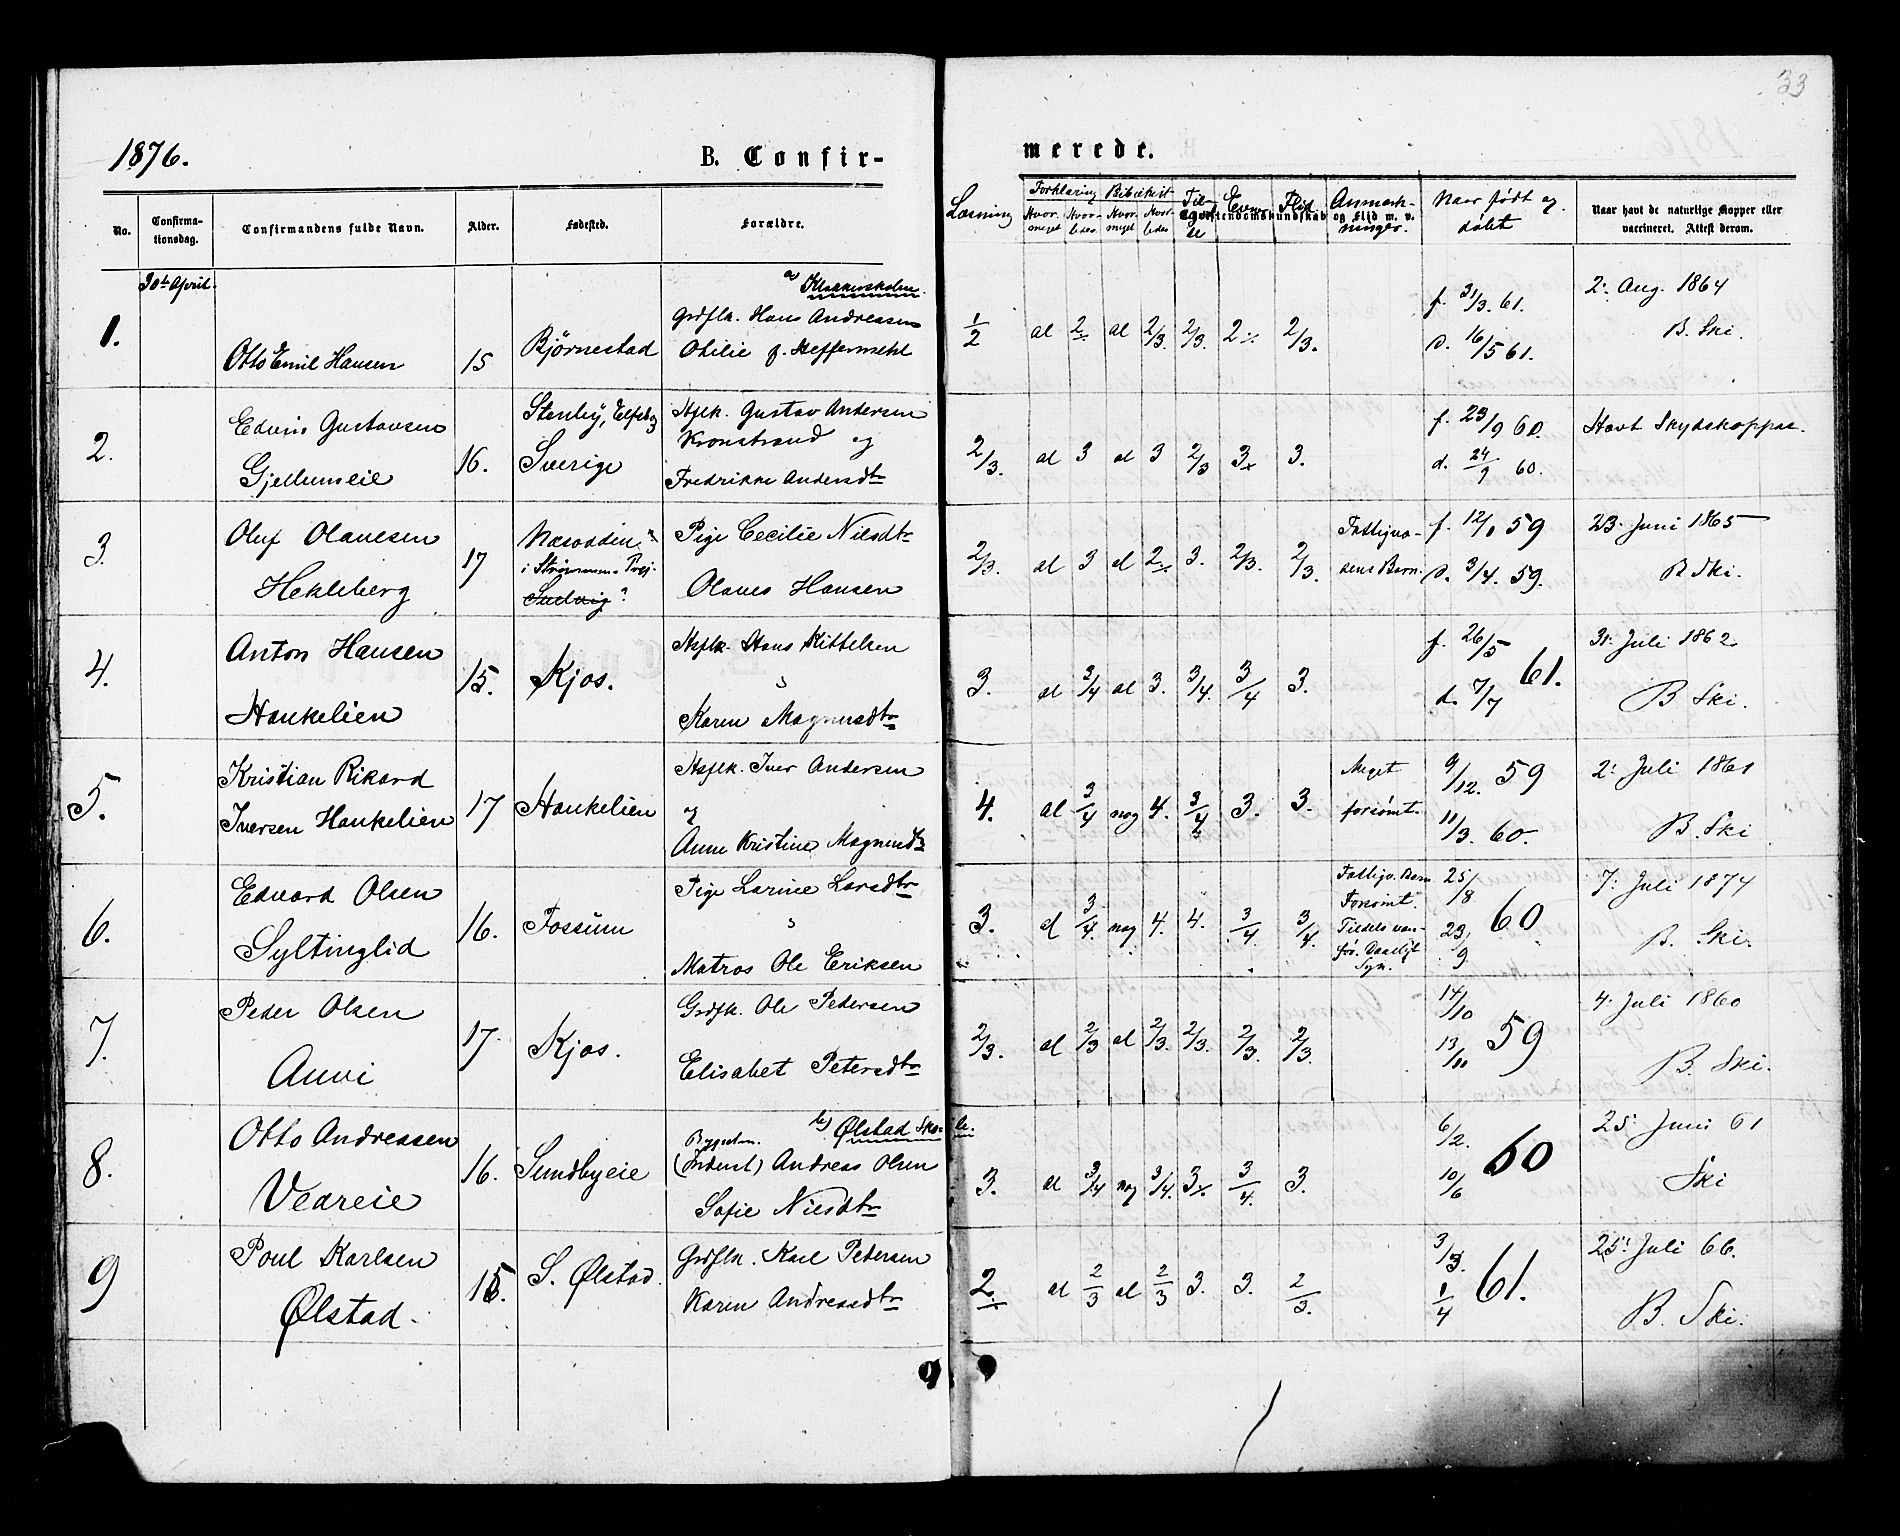 33
1876.
B. Confir-
merede.
No.
Confirma-
tionsdag.
Confirmandens fulde Navn.
Alder.
Fødested.
Forældre.
Læsning
Forklaring
Hvor
meget
Hvor-
ledes
Hvor
meget
Hvor-
ledes
Flid
Anmærk-
ninger.
og Flid m. v.
Naar født og
døbt
Naar havt de naturlige Kopper eller
vaccineret. Attest derom.
30te April.
1.
Otto Emil Hansen
15
Bjørnestad
a Klokkerskolen.
Grdflk. Hans Andreasen
Otilie f. Heffermehl
1/2 al 2÷ al 2/3. 2/3. 2÷ 2/3.
f. 31/3. 61.
d. 16/5 61.
2: Aug. 1864
B. Ski.
2.
Edvin Gustavsen
Gjellumseie
16.
Stenby, Elfsb
Sverige
Hsflk. Gustav Andersen
Kronstrand og
Fredrikke Andersdtr
2/3. al 3 al 3 2/3 3x 3.
f. 23/9 60.
d. 24/9 60.
Havt Skydskopper.
3.
Oluf Olauesen
Hekleberg
17
Næsodden
i Strømmens Præj.
Pige Cecilie Nilsdtr
Olaves Hansen
2/3. al 3 al 2÷ 3. 2/3. 2/3.
Fattigvæ-
sens Barn.
f. 12/1 59
d. 3/4. 59.
23. Juni 1865
B Ski.
4.
Anton Hansen
Haukelien
15.
Kjos.
Hsflk. Hans Kittelsen
Karen Magnusdtr
3. al 3/4 al 3. 3/4. 3/4 3.
f. 26/5
d. 7/7 61.
31. Juli 1862
B Ski.
5.
Kristian Rikard
Iversen Haukelien
17
Haukelien
Hsflk. Iver Andersen
og
Anne Kristine Magnusdtr
4. al 3/4 nog 4. 3/4 3. 3.
Meget
forsømt.
9/12. 59
11/3. 60.
2: Juli 1861
B. Ski
6.
Edvard Olsen
Syltinglid
16.
Fossum
Pige Larine Larsdtr
Matros Ole Eriksen
3. al 3/4. nog 4. 4. 3/4. 3/4.
Fattigv. Barn
Forsømt.
Tildels van-
før. Daarligt
Syn.
25/8
23/9 60
7: Juli 1874
B. Ski.
7.
Peder Olsen
Auvi
17.
Kjos.
Grdflk. Ole Pedersen
Elisabet Petersdtr
2/3. al 2/3 al 2/3. 2/3. 2/3. 2/3.
14/10
13/11 59
4: Juli 1860
B. Ski.
8.
Otto Andreassen
Vedreie
16.
Sundbyeie
b) Ølstad Skole.
(Inderst) Andreas Olsen
Sofie Nilsdtr
3. al 3/4 nog 3/4. 3x 3/4. 3.
6/2.
10/6 60
25: Juni 61
Ski
9
Poul Karlsen
Ølstad.
15.
S. Ølstad.
Grdflk. Karl Petersen
Karen Andreasdtr
2÷ al 2/3 al 2/3 3. 3. 2/3.
3/3.
1/4 61.
25: Juli 66.
B. Ski.
9